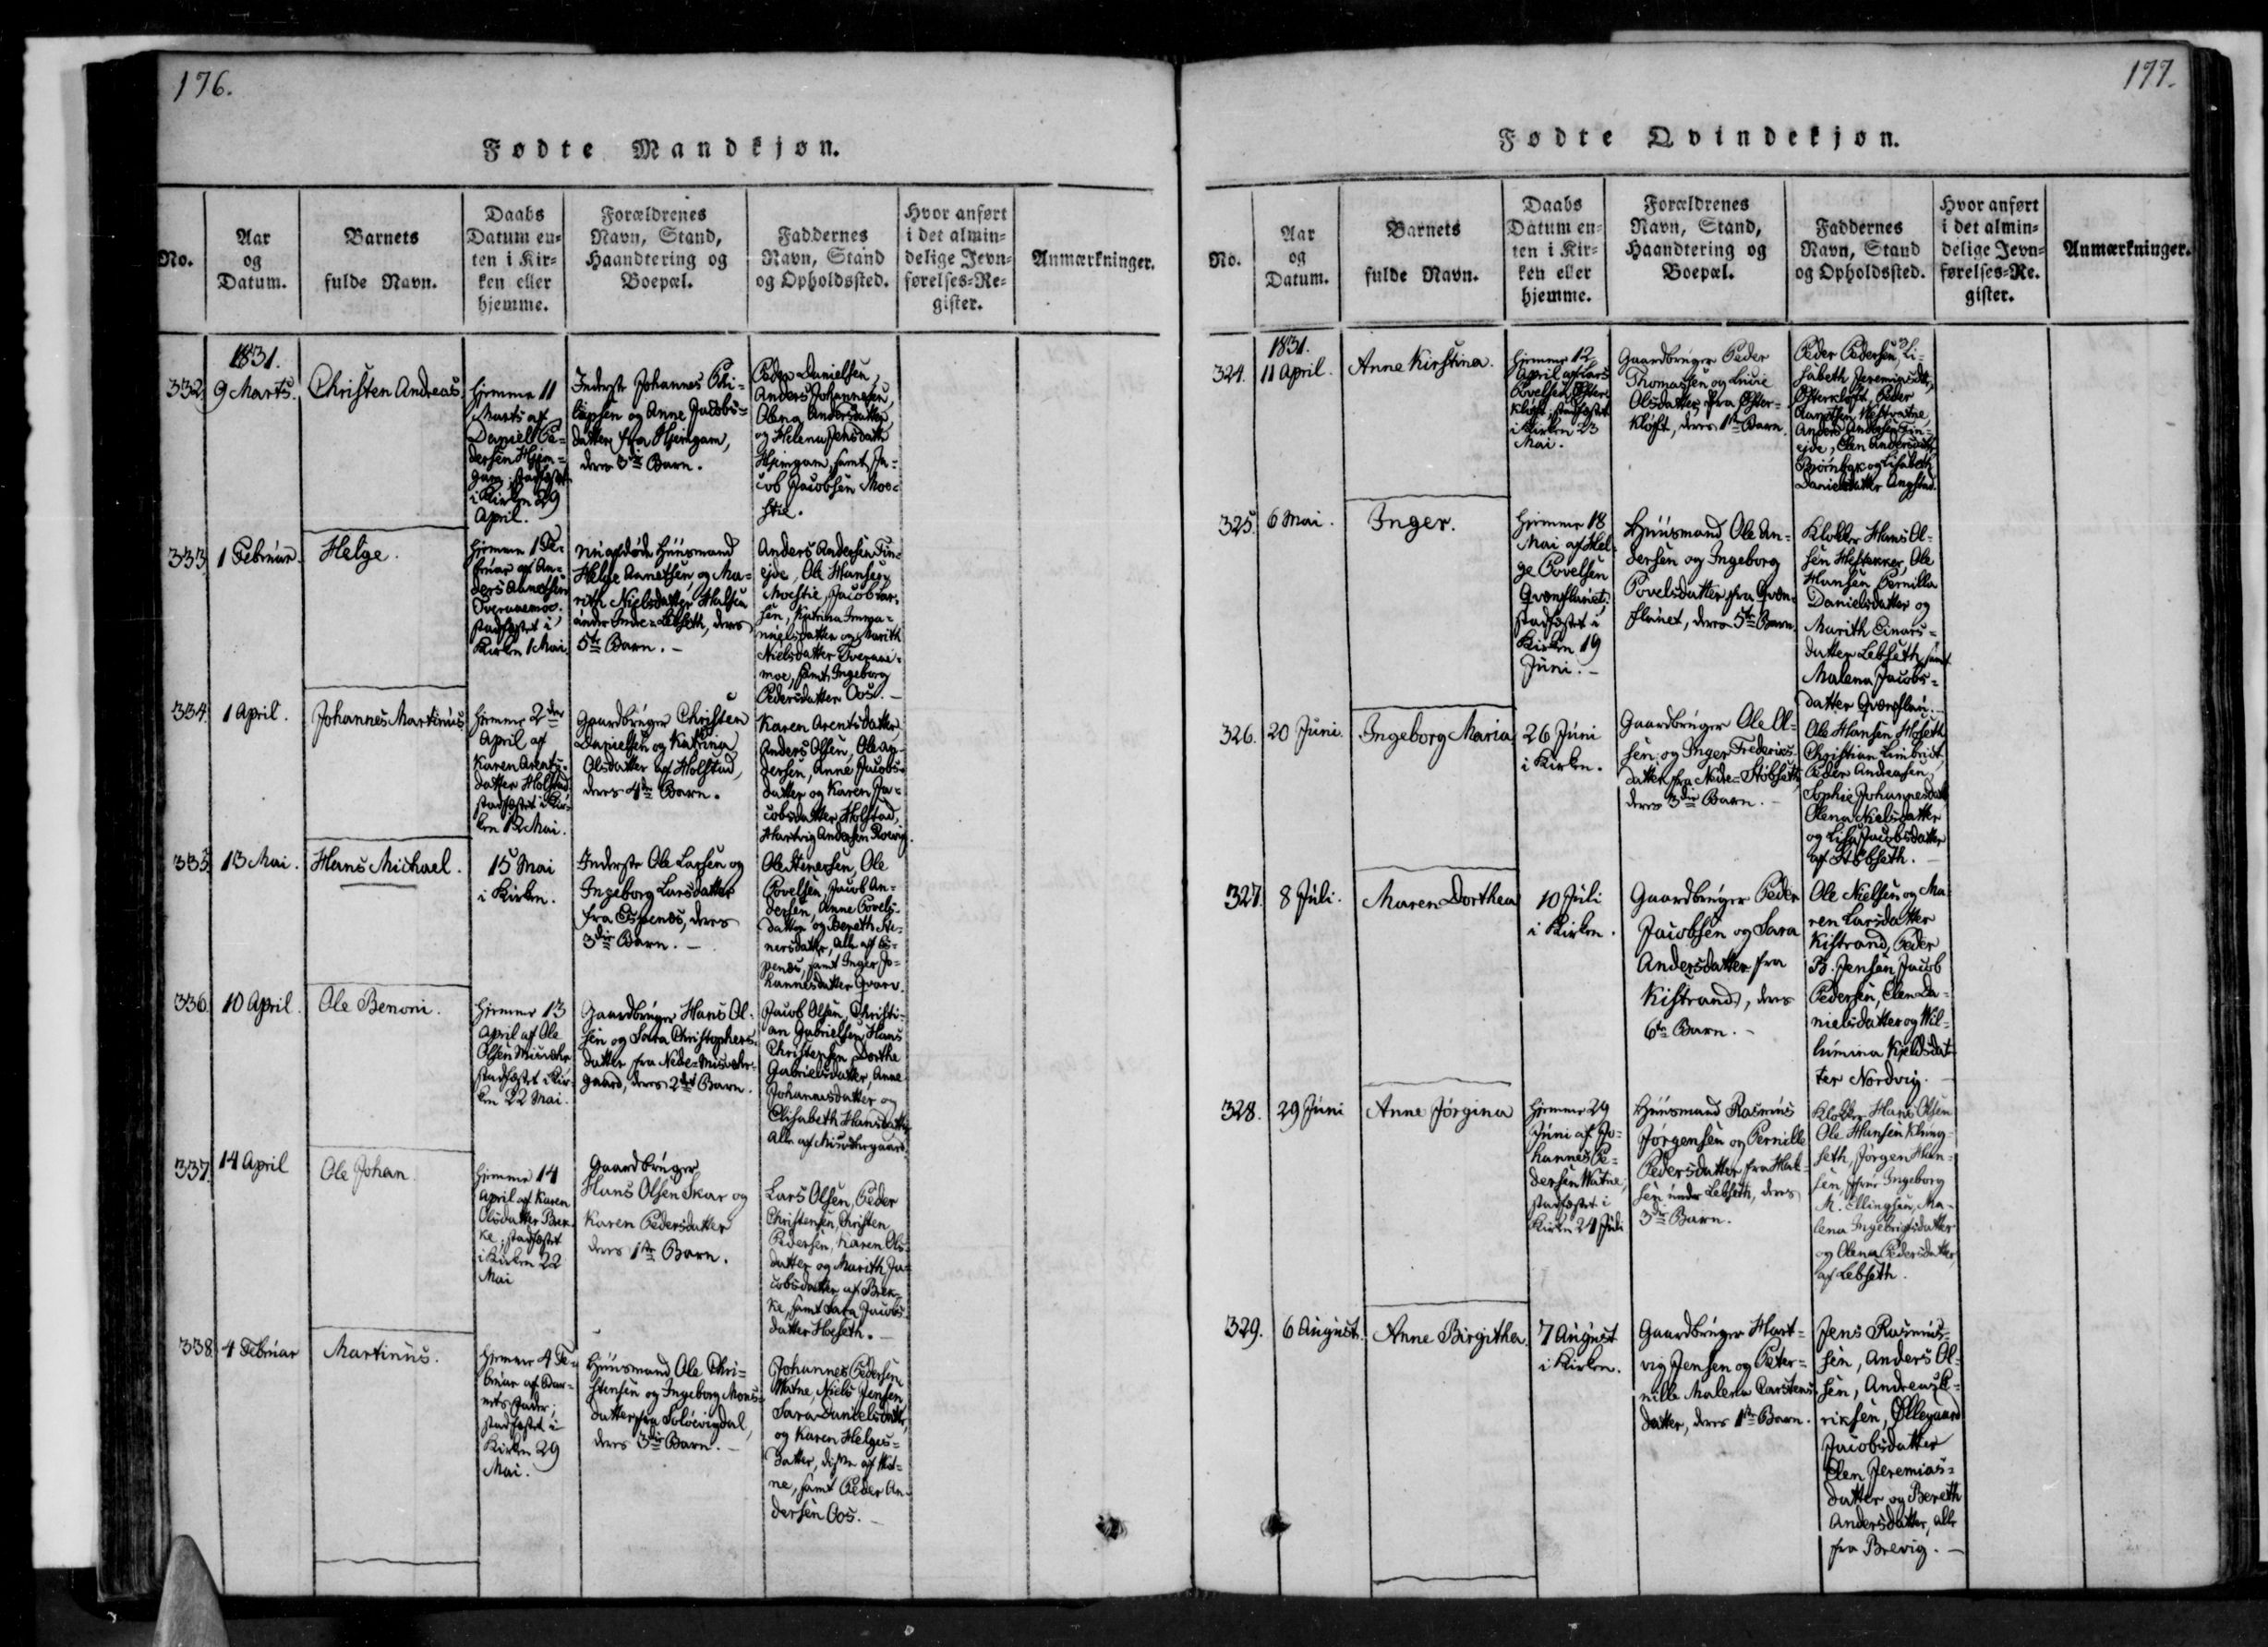 176.
Fødte Mandkjøn.
No.
Aar
og
Datum.
Barnets
fulde Navn.
Daabs
Datum en-
ten i Kir-
ken eller
hjemme.
Forældrenes
Navn, Stand,
Haandtering og
Boepæl.
Faddernes
Navn, Stand
og Opholdssted.
Hvor anført
i det almin-
delige Jevn-
førelses-Re-
gister.
Anmærkninger.
1831.
332.
9 Marts.
Christen Andreas
hjemme 11
Marts af
Daniel Pe-
dersen Hjem-
gam; stadfæstet
i Kirken 29
April.
Inderste Johannes Phi-
lipsen og Anne Jacobs-
datter fra Hjemgam,
deres 3die Barn.
Peder Danielsen,
Anders Johannesen,
Olena Andersdatter
og Helena Jensdatter
Hjemgam, samt Ja-
cob Jacobsen Moe-
stie.
333.
1 Februar.
Helge.
hjemme 1 Fe-
bruar af An-
ders Annetsen
Tveraamoe.
stadfæstet i
Kirken 1 Mai.
nu afdøde Huusmand
Helge Annetsen og Ma-
rith Nielsdatter Halsen
under Indre-Lebseth, deres
5te Barn. -
Anders Andersen Fin-
ejde, Ole Hansen
Moestie, Jacob Lar-
sen, Katrina Imma-
nuelsdatter og Marith
Nielsdatter Tveraa-
moe, samt Ingeborg
Pedersdatter Oos. -
334.
1 April.
Johannes Martinus
hjemme 2den
April af
Karen Arents-
datter Holstad
stadfæstet i Kir-
ken 12 Mai.
Gaardbruger Christen
Danielsen og Katrina
Olsdatter af Holstad,
deres 4de Barn.
Karen Arentsdatter,
Anders Olsen, Ole An-
dersen, Anne Jacobs-
datter og Karen Ja-
cobsdatter Holstad,
Hartvig Andersen Roevig.
335.
13 Mai.
Hans Michael.
15 Mai
i Kirken.
Inderste Ole Larsen og
Ingeborg Larsdatter
fra Espenæs, deres
3die Barn. -
Ole Stenersen, Ole
Povelsen, Jacob An-
dersen, Anne Povels-
datter og Bereth Ste-
nersdatter, alle af Es-
penæs, samt Inger Jo-
hannesdatter Qvarv.
336.
10 April.
Ole Benoni.
hjemme 13
April af Ole
Olsen Misvær
stadfæstet i Kir-
ken 22 Mai.
Gaardbruger Hans Ol-
sen og Sara Christophers-
datter fra Nedre-Misvær-
gaard, deres 2det Barn.
Jacob Olsen, Christi-
an Gabrielsen, Hans
Christensen, Dorthe
Gabrielsdatter, Anne
Johannesdatter og
Elisabeth Hansdatter
Alle af Misværgaard.
337.
14 April
Ole Johan.
hjemme 14
April af Karen
Olsdatter Brek-
ke; stadfæstet
i Kirken 22
Mai
Gaardbruger
Hans Olsen Skar og
Karen Pedersdatter
deres 1ste Barn.
Lars Olsen, Peder
Christensen, Christen
Pedersen, Karen Ols-
datter og Marith Ja-
cobsdatter af Brek-
ke, samt Sara Jacobs-
datter Hoseth. -
338.
4 Februar
Martinus.
hjemme 4 Fe-
bruar af Bar-
nets Fader;
stadfæstet i
Kirken 29
Mai.
Huusmand Ole Chri-
stensen og Ingeborg Mons-
datter fra Soløevigdal,
deres 3die Barn. -
Johannes Pedersen
Watne, Niels Jensen,
Sara Danielsdatter,
og Karen Helges-
datter, disse af Wat-
ne, samt Peder An-
dersen Oos. -
177.
Fødte Qvindekjøn.
No.
Aar
og
Datum.
Barnets
fulde Navn.
Daabs
Datum en-
ten i Kir-
ken eller
hjemme.
Forældrenes
Navn, Stand,
Haandtering og
Boepæl.
Faddernes
Navn, Stand
og Opholdssted.
Hvor anført
i det almin-
delige Jevn-
førelses-Re.
gister.
Anmærkninger.
1831.
324.
11 April.
Anne Kirstina.
hjemme 12
April af Lars
Povelsen Øster-
kløft; stadfæstet
i Kirken 23
Mai.
Gaardbruger Peder
Thomassen og Lucie
Olsdatter fra Øster-
kløft, deres 1ste Barn.
Peder Pedersen, Li-
sabeth Jeremiasdtr,
Østerkløft, Peder
Annetsen Westvatne,
Anders Andersen Fin-
ejde, Elen Andersdatter
Bjørnbak og Lisabeth
Danielsdatter Angstad.
325.
6 Mai.
Inger.
hjemme 18
Mai af Hel-
ge Povelsen
Qvænflaaet;
stadfæstet i
Kirken 19
Juni. -
Huusmand Ole An-
dersen og Ingeborg
Povelsdatter fra Qvæn-
flaaet, deres 5te Barn.
Klokker Hans Ol-
sen Hestekker, Ole
Hansen, Pernilla
Danielsdatter og
Marith Einars-
datter Lebseth, samt
Malena Jacobs-
datter Qvænflaa. -
326.
20 Juni.
Ingeborg Maria
26 Juni
i Kirken.
Gaardbruger Ole Ol-
sen og Inger Frederics-
datter fra Nedre-Støbseth,
deres 3die Barn. -
Ole Hansen Hoseth
Christian Limbridt,
Peder Andreasen,
Sophie Johannesdatter
Olena Nielsdatter
og Lisa Jacobsdatter
af Støbseth. -
327.
8 Juli.
Maren Dorthea
10 Juli
i Kirken.
Gaardbruger Peder
Jacobsen og Sara
Andersdatter fra
Kistrand, deres
6te Barn. -
Ole Nielsen og Ma-
ren Larsdatter
Kistrand, Peder
B. Jensen, Jacob
Pedersen, Elen Da-
nielsdatter og Wil-
lumina Kjeldsdat-
ter Nordvig. -
328.
29 Juni
Anne Jørgina
hjemme 29
Juni af Jo-
hannes Pe-
dersen Watne;
stadfæstet i
Kirken 24 Juli
Huusmand Rasmus
Jørgensen og Pernille
Pedersdatter fra Hal-
sen under Lebseth, deres
3die Barn.
Klokker Hans Olsen
Ole Hansen Klung-
seth, Jørgen Han-
sen, Frue Ingeborg
M. Ellingsen, Ma-
lena Ingebrigtsdatter
og Olena Pedersdatter,
af Lebseth.
329.
6 August.
Anne Birgitha.
7 August
i Kirken.
Gaardbruger Hart-
vig Jensen og Peter-
nille Malena Carstens-
datter, deres 1ste Barn.
Jens Rasmus-
sen, Anders Ol-
sen, Andreas E-
riksen, Øllegaard
Jacobsdatter
Elen Jeremias-
datter og Bereth
Andersdatter, alle
fra Brevig. -